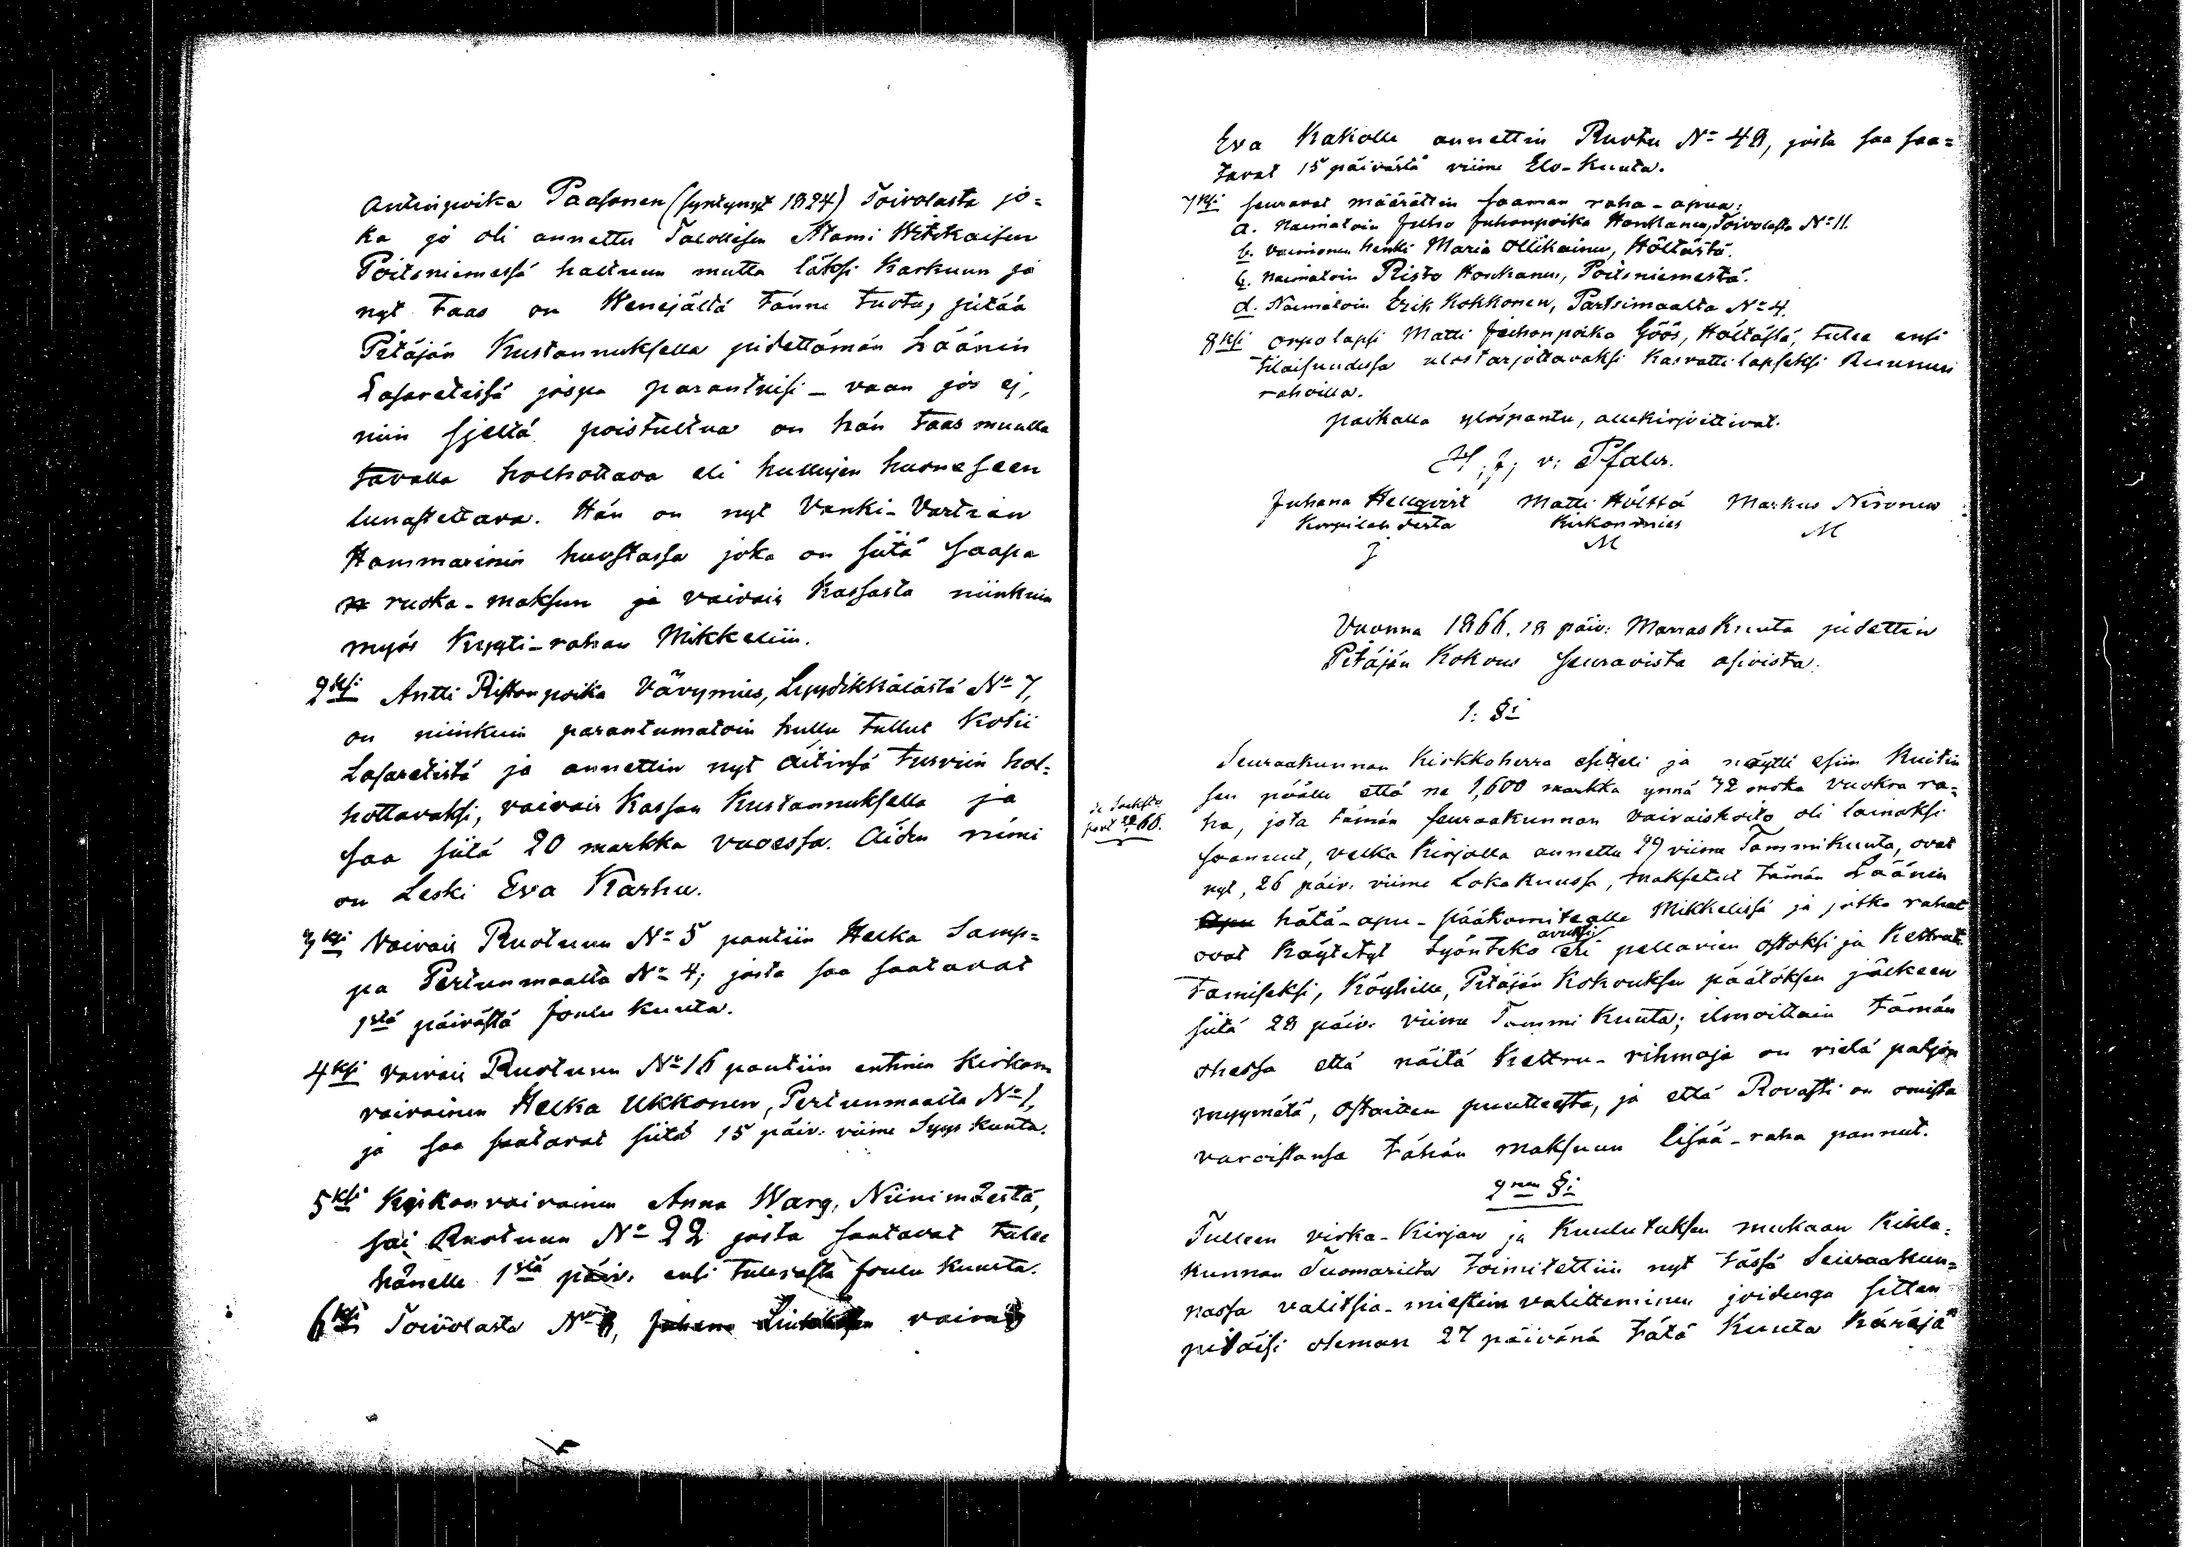 Antinpoika Paasonen (syntynyt 1824) Toivolasta jo=
ka jo oli annettu Talollisen Atami Witikaisen
Poitsniemessä haltuun mutta läksi karkuun ja
nyt taas on Wenejältä tänne tuotu, pitää
Pitäjän Kustannuksella pidettämän Läänin
Lasaretissä jospa parantuisi - vaan jos ej,
niin sjeltä poistultua on hän taas muulla
tavalla holhottava eli hullujen huoneseen
lunastettava. Hän on nyt Vanki-Vartian
Hammarinin huostassa joka on siitä saapa
ruoka-maksun ja vaivais Kassasta niinkuin
myös Kyyti-rahan Mikkeliin.
2ksi Antti Ristonpoika Vävymies, Lepydikkälästä No 7,
on niinkuin parantumatoin hullu tullut Kotii
Lasaretistä ja annettin nyt äitinsä turviin hol=
hottavaksi, vaivais Kassan Kustannuksella ja
saa siitä 20 markka vuodessa. Äiden nimi
on Leski Eva Karhu.
3ksi Vaivais Ruotuun No 5 pantiin Helka Samp=
pa Pertunmaalta No 4; josta saa saatavat
1stä päivästä Joulu Kuuta.
4ksi vaivais Ruotuun No 16 pantiin entinen kirkon
vaivainen Helka Ukkonen, Pertunmaalta No 1,
ja saa saatavat siitä 15 päiv. viime Syys Kuuta.
5ksi Kirkon vaivainen Anna Warg, Niinimäestä,
sai Ruotuun No 22 josta saatavat tulee
hänelle 1stä päiv. ensi tulevasta Joulu Kuuta.
6ksi Toivolasta No 8, Juhana vaivais
Eva Kakolle annettin Ruotu No 48, josta saa saa=
tavat 15 päivästä viime Elo-Kuuta.
7ksi seuravat määrättin saaman raha-apua:
a. Naimatoin Juho Juhonpoika Honkanen, Toivolasta No 11.
b. Vaimonen henki Maria Ollikainen, Höltästä.
c. Naimatoin Risto Honkanen, Poitsniemestä.
d. Naimatoin Erik Kokkonen, Partsimaalta No 4.
8ksi orpo lapsi Matti Juhonpoika Göös, Höltästä, tulee ensi
tilaisuudessa ulostarjottavaksi Kasvatti lapseksi Ruunun
rahoilla.
paikalla ylöspantu, allekirjoittivat.
H. J. v: Pfaler.
Juhana Hellqvist Matti Hölttä Markus Nironen
Korpilahdesta Kirkonmies M
J M
Vuonna 1866. 18 päiv: Marras Kuuta pidettin
Pitäjän Kokous seuravista asioista.
1: §i
Seuraakunnan Kirkkoherra esitteli ja näytti esiin Kuitin
sen päälle että ne 1,600 markka ynnä 72 marka vuokra ra=
ha, jota tämän seuraakunnan vaivaishoito oli lainaksi
saanut, velka Kirjalla annettu 29 viime Tammikuuta, ovat
nyt, 26 päiv. viime Lokakuussa, maksetut tämän Läänin
Apu hätä-apu-pääkomitealle Mikkelissä ja jotka rahat
ovat Käytetyt työnteko avuksi eli pellavien ostoksi ja Kettrut=
tamiseksi, Köyhille, Pitäjän Kokouksen päätöksen jälkeen
siitä 28 päiv. viime Tammi Kuuta; ilmoittain tämän
ohessa että näitä Kettru-rihmoja on vielä paljon
myymätä, ostaiten puutteesta, ja että Rovasti on omista
varoistansa tähän maksuun lisää-raha pannut.
2nen §i
Tulleen virka-Kirjan ja Kuulutuksen mukaan Kihla=
kunnan Tuomarilta toimitettiin nyt tässä Seuraakun=
nassa valitsia-miestein valitteminen joidenga sitten
pitäisi oleman 27 päivänä tätä Kuuta Käräjä